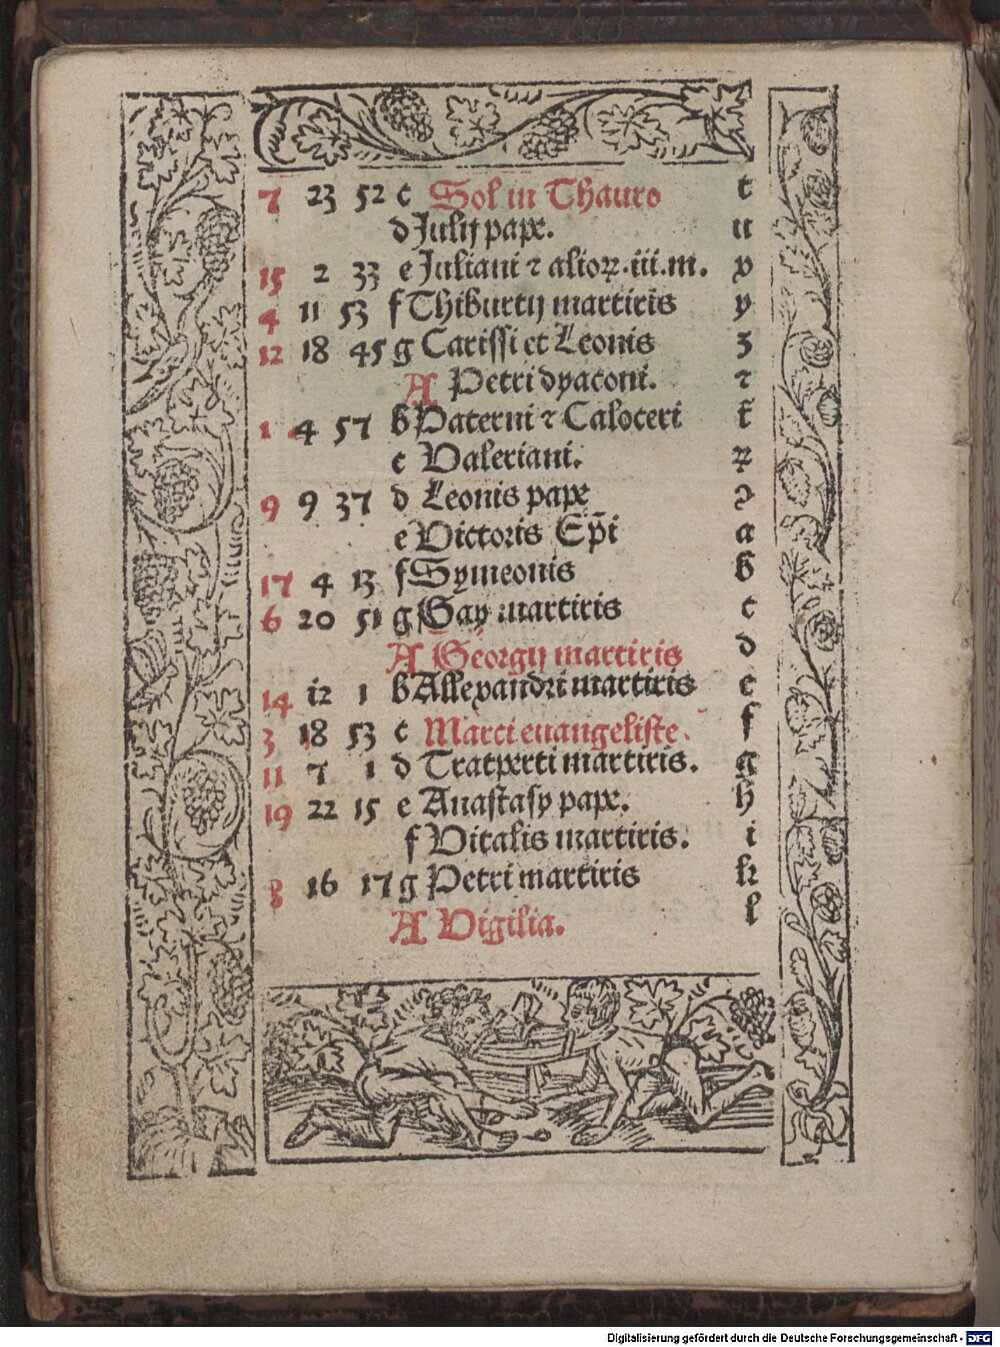 7 23 52 c Sol in Thauro t
d Julij pape. u
15 2 33 e Juliani ⁊ alioꝝ .iii.m. x
4 11 53 f Thiburtij martiris y
12 18 45 g Carissi et Leonis z
A Petri dyaconi. ⁊
1 4 57 b Paterni ⁊ Caloceri
c Valeriani. ꝝ
9 9 37 d Leonis pape
e Victoris Ep̄i a
17 4 13 f Symeonis b
6 20 51 g Gay martiris c
A Georgij martiris d
14 12 1 b Allexandri martiris e
3 18 53 c Marci euangeliste. f
11 7 1 d Tratperti martiris. g
19 22 15 e Anastasy pape. h
f Vitalis martiris. i
8 16 17 g Petri martiris k
A Vigilia. l
Digitalisierung gefördert durch die Deutsche Forschungsgemeinschaft - DFG